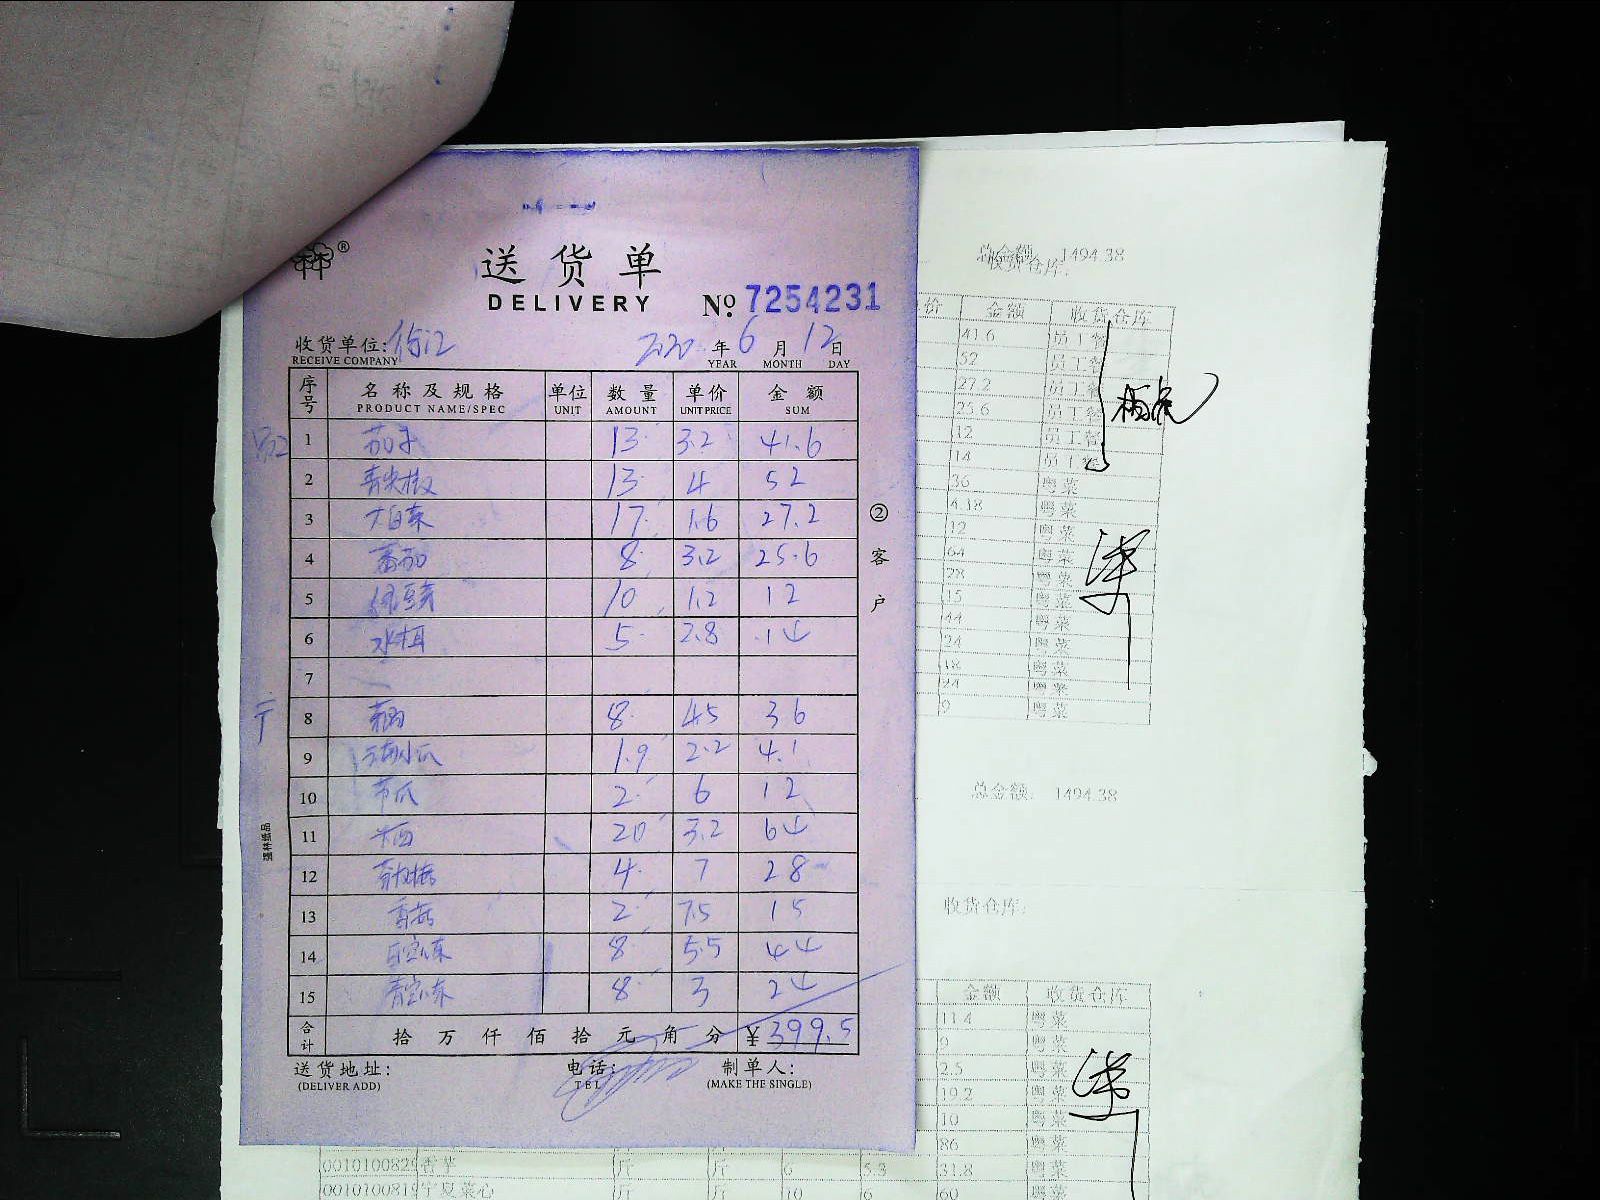 送货单
DELIVERY
№ 7254231
收货单位:
RECEIVE COMPANY
2020 年 6 月 12 日
YEAR MONTH DAY
序号 名称及规格 单位 数量 单价 金额
PRODUCT NAME/SPEC UNIT AMOUNT UNIT PRICE SUM
1 茄子 13 3.2 41.6
2 青尖椒 13 4 52
3 大白菜 17 1.6 27.2
4 番茄 8 3.2 25.6
5 绿豆芽 10 1.2 12
6 水木耳 5 2.8 14
7
8 8 4.5 36
9 云南小瓜 1.9 2.2 4.1
10 节瓜 2 6 12
11 20 3.2 64
12 4 7 28
13 香菇 2 7.5 15
14 8 5.5 44
15 8 3 24
合计 拾 万 仟 佰 拾 元 角 分 ¥399.5
送货地址:
(DELIVER ADD)
电话:
TEL
制单人:
(MAKE THE SINGLE)
② 客户
强林纸品
总金额: 1494.38
收货仓库:
价 金额 收货仓库
41.6 员工餐
52 员工餐
27.2 员工餐
25.6 员工餐
12 员工餐
14 员工餐
36 粤菜
4.18 粤菜
12 粤菜
64 粤菜
28 粤菜
15 粤菜
44 粤菜
24 粤菜
18 粤菜
24 粤菜
9 粤菜
总金额: 1494.38
收货仓库:
金额 收货仓库
11.4 粤菜
9 粤菜
2.5 粤菜
19.2 粤菜
10 粤菜
86 粤菜
香芋 斤 斤 6 5.3 31.8 粤菜
宁夏菜心 斤 斤 10 6 60 粤菜